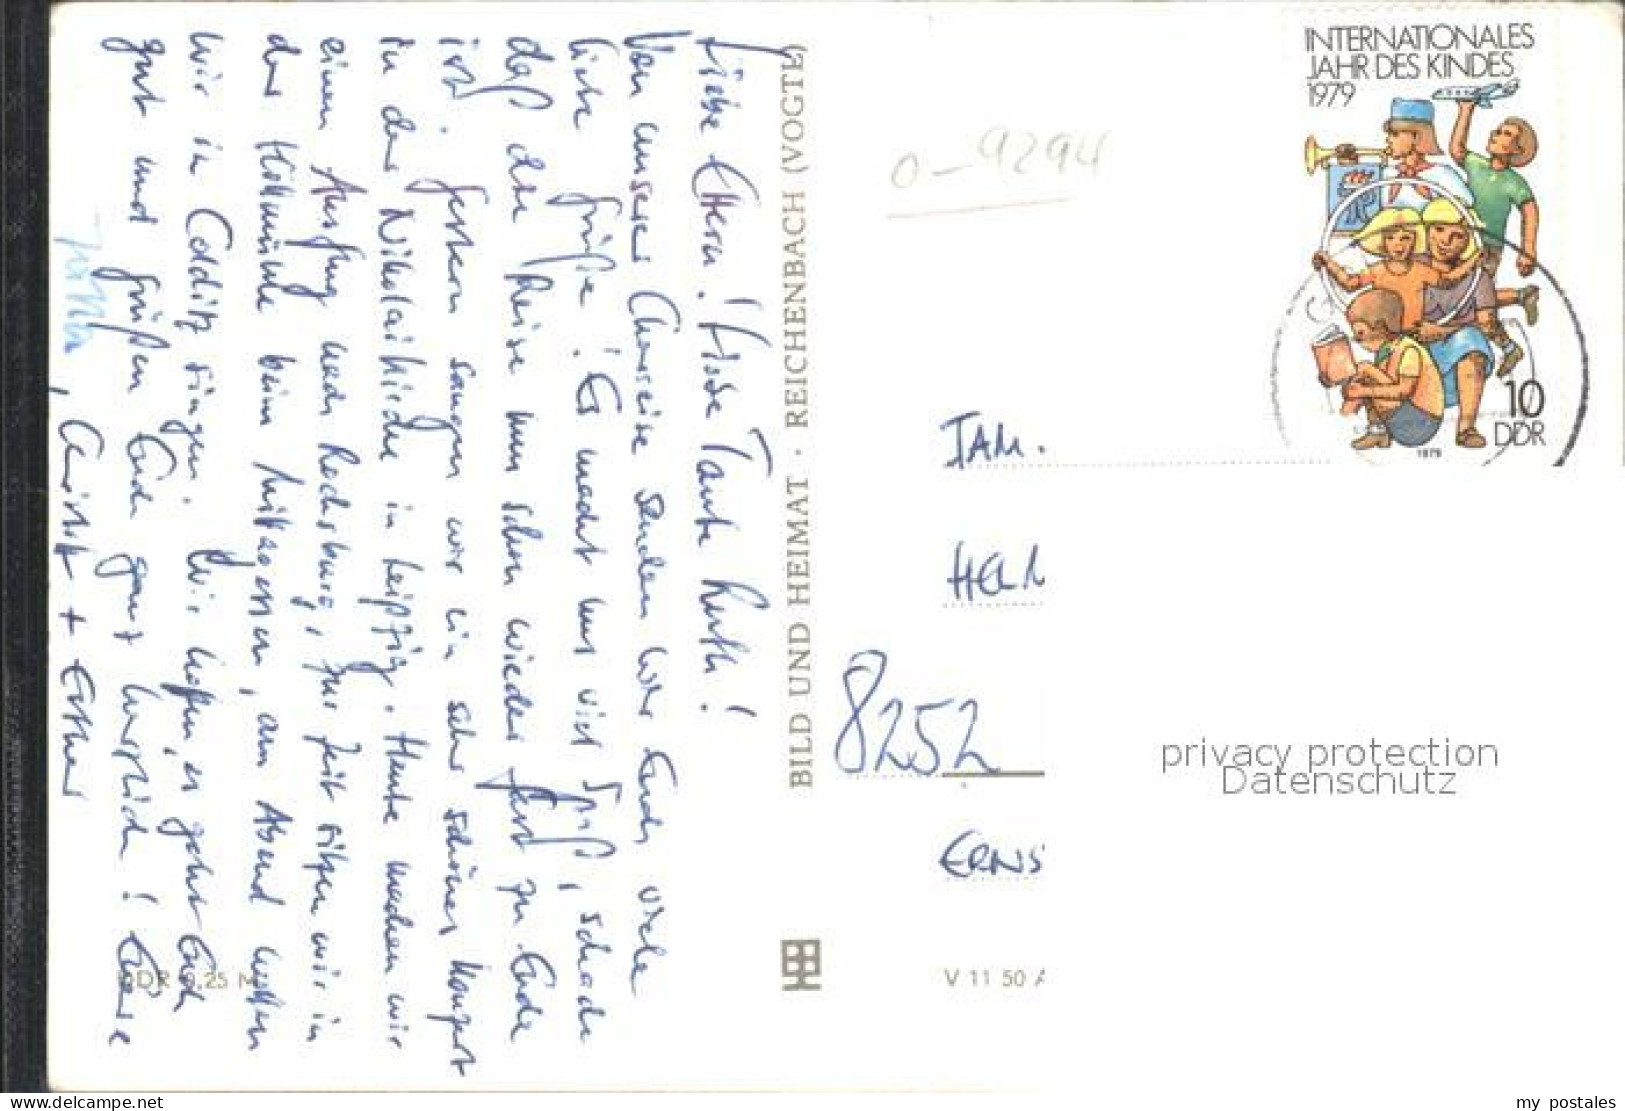 Liebe Eltern! Liebe Tante Ruth!
Von unserer Chorreise senden wir Euch viele
liebe Grüße! Es macht uns viel Spaß, schade
daß die Reise nun schon wieder fast zu Ende
ist. Gestern sangen wir ein sehr schönes Konzert
in der Nikolaikirche in Leipzig. Heute machen wir
einen Ausflug nach Rochsburg, zur Zeit sitzen wir in
der beim Mittagessen, am Abend wollen
wir in Colditz singen. Wir hoffen, es geht Euch
gut und grüßen Euch ganz herzlich! Eure
Christit + Esther
BILD UND HEIMAT · REICHENBACH (VOGTL)
DDR 0,25 M
V 11 50 A
0-9294
INTERNATIONALES
JAHR DES KINDES
1979
10
DDR
1979
FAM.
HELM
8252
ERNS
privacy protection
Datenschutz
www.delcampe.net
my_postales